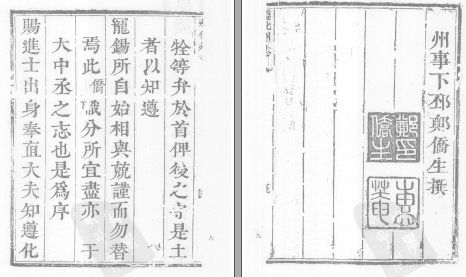 等弁於首俾後之守是土
者以知遵
寵錫所自始相與兢謹而勿替
焉此僑職分所宜盡亦于
大中丞之志也是爲序
賜進士出身奉直大夫知遵化
州事下邳鄭僑生撰
鄭印僑生